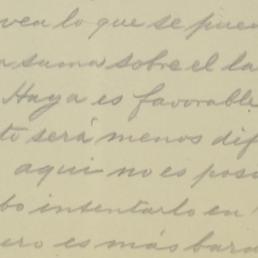 vea lo que se pue
a suma sobre el la
Haya es favorable
to será menos dif
aqui no es pos
bo intentarlo en
ero es más bara